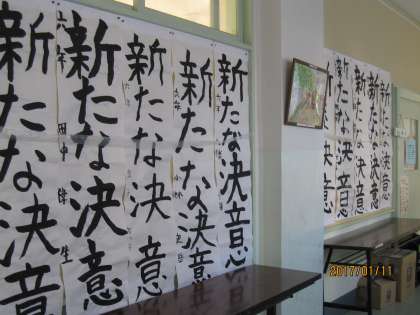 新たな決意
新たな決意
六年 田中 陸生
新たな決意
新たな決意
六年
新たな決意
新たな決意
新たな決意
新たな決意
新たな決意
2017/01/11